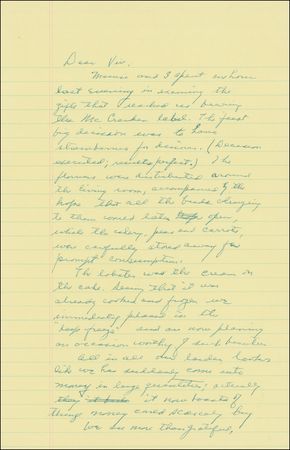 Dear Viv.
Mamie and I spent an hour
last evening in examining the
gifts that reached us bearing
the Mc Cracken label. The first
big decision was to have
strawberries for dinner. (Decision
executed; results perfect.) The
flowers was distributed around
the living room, accompanied by the
hope that all the buds clinging
to them would later open,
while the celery, peas and carrots,
were carefully stored away for
prompt consumption.
The lobster was the cream on
the cake. Seeing that it was
already cooked and frozen we
immediately placed in the
"deep freeze" and are now planning
an occasion worthy of such beauties.
All in all our larder looks
like we has suddenly come into
money in large quantities; actually
it now boasts of
things money could scarcely buy
We are more than grateful,